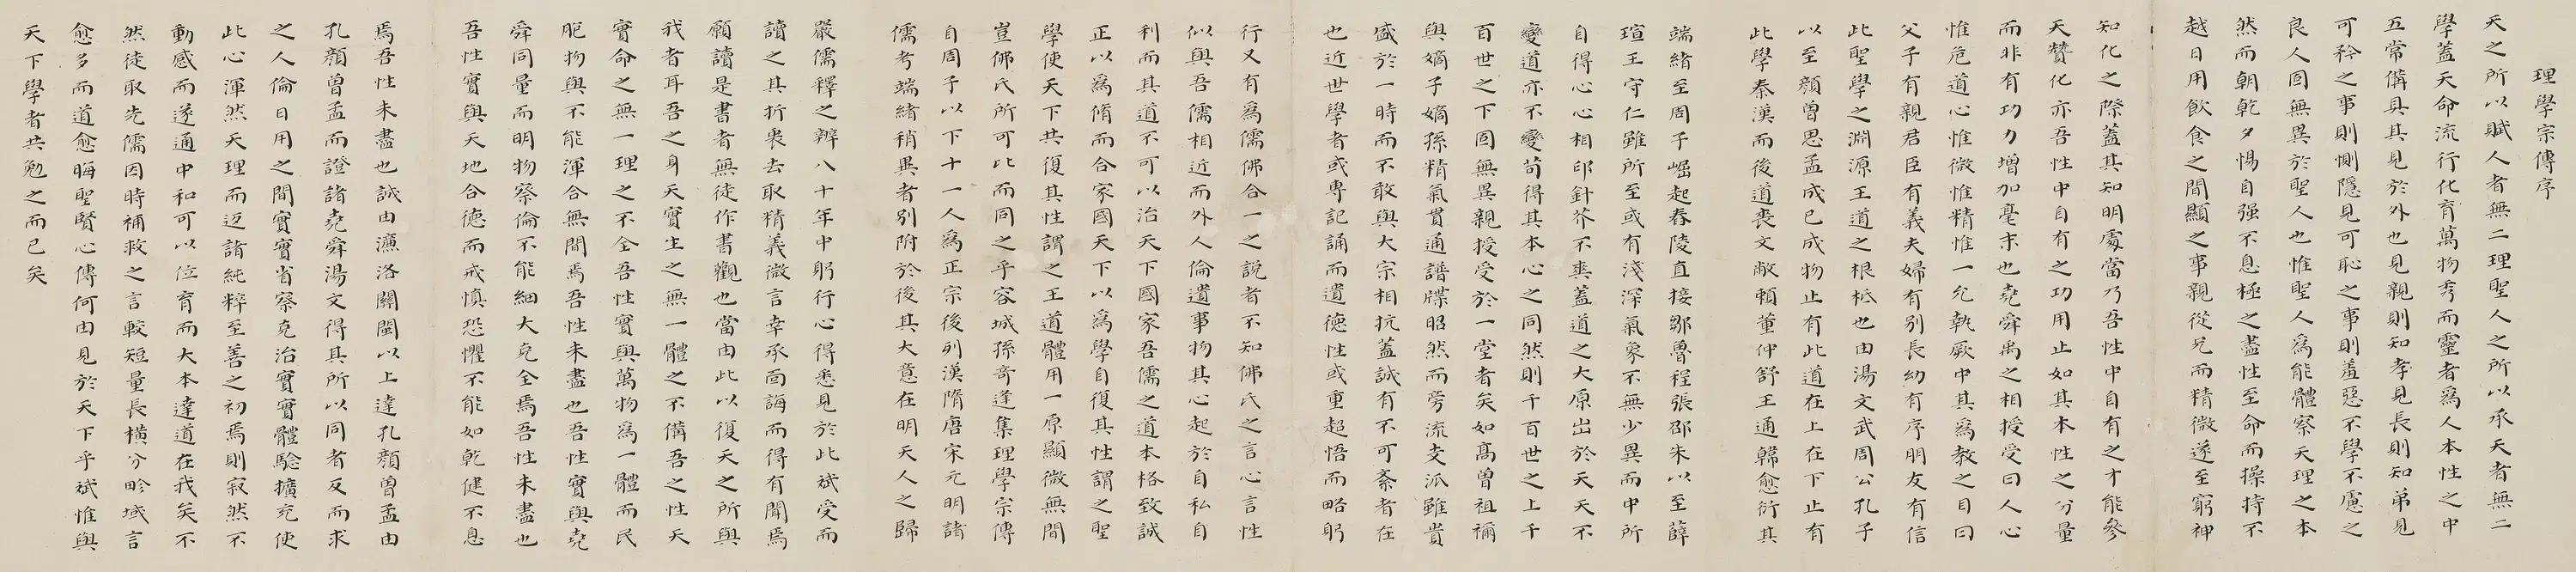 理學宗傳序
天之所以賦人者無二理聖人之所以承天者無二
學蓋天命流行化育萬物秀而靈者爲人本性之中
五常備具其見於外也見親則知孝見長則知弟見
可矜之事則惻隱見可恥之事則羞惡不學不慮之
良人固無異於聖人也惟聖人爲能體察天理之本
然而朝乾夕惕自强不息極之盡性至命而操持不
越日用飲食之間顯之事親從兄而精微遂至窮神
知化之際蓋其知明處當乃吾性中自有之才能參
天贊化亦吾性中自有之功用止如其本性之分量
而非有功力增加毫末也堯舜禹之相授受曰人心
惟危道心惟微惟精惟一允執厥中其爲教之目曰
父子有親君臣有義夫婦有別長幼有序朋友有信
此聖學之淵源王道之根柢也由湯文武周公孔子
以至顏曾思孟成己成物止有此道在上在下止有
此學秦漢而後道喪文敝賴董仲舒王通韓愈衍其
端緒至周子崛起舂陵直接鄒魯程張邵朱以至薛
瑄王守仁雖所至或有淺深氣象不無少異而中所
自得心心相印針芥不爽蓋道之大原出於天天不
變道亦不變苟得其本心之同然則千百世之上千
百世之下固無異親授受於一堂者矣如高曾祖禰
與嫡子嫡孫精氣貫通譜牒昭然而旁流支派雖貴
盛於一時而不敢與大宗相抗蓋誠有不可紊者在
也近世學者或專記誦而遺德性或重超悟而略躬
行又有爲儒佛合一之說者不知佛氏之言心言性
似與吾儒相近而外人倫遺事物其心起於自私自
利而其道不可以治天下國家吾儒之道本格致誠
正以爲脩而合家國天下以爲學自復其性謂之聖
學使天下共復其性謂之王道體用一原顯微無間
豈佛氏所可比而同之乎容城孫奇逢集理學宗傳
自周子以下十一人爲正宗後列漢隋唐宋元明諸
儒考端緒稍異者別附於後其大意在明天人之歸
嚴儒釋之辨八十年中躬行心得悉見於此斌受而
讀之其折衷去取精義微言幸承面誨而得有聞焉
願讀是書者無徒作書觀也當由此以復天之所與
我者耳吾之身天實生之無一體之不備吾之性天
實命之無一理之不全吾性實與萬物爲一體而民
胞物與不能渾合無間焉吾性未盡也吾性實與堯
舜同量而明物察倫不能細大克全焉吾性未盡也
吾性實與天地合德而戒慎恐懼不能如乾健不息
焉吾性未盡也誠由濂洛關閩以上達孔顏曾孟由
孔顏曾孟而證諸堯舜湯文得其所以同者反而求
之人倫日用之間實實省察克治實實體驗擴充使
此心渾然天理而返諸純粹至善之初焉則寂然不
動感而遂通中和可以位育而大本達道在我矣不
然徒取先儒因時補救之言較短量長橫分畛域言
愈多而道愈晦聖賢心傳何由見於天下乎斌惟與
天下學者共勉之而已矣